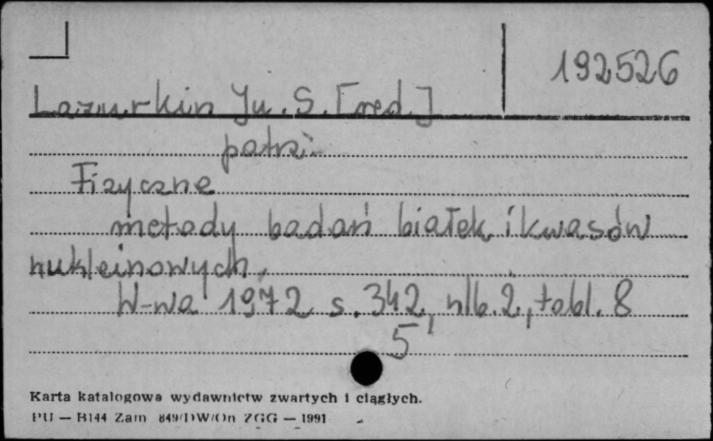 192526
Lazurkin Ju. S. [red.]
patrz:
Fizyczne
metody badań białek i kwasów
nukleinowych,
W-wa 1972 s. 342, nlb. 2, tabl. 8
5
Karta katalogowa wydawnictw zwartych i ciągłych.
PU — B144 Zam 849/DW/On ZGG — 1991